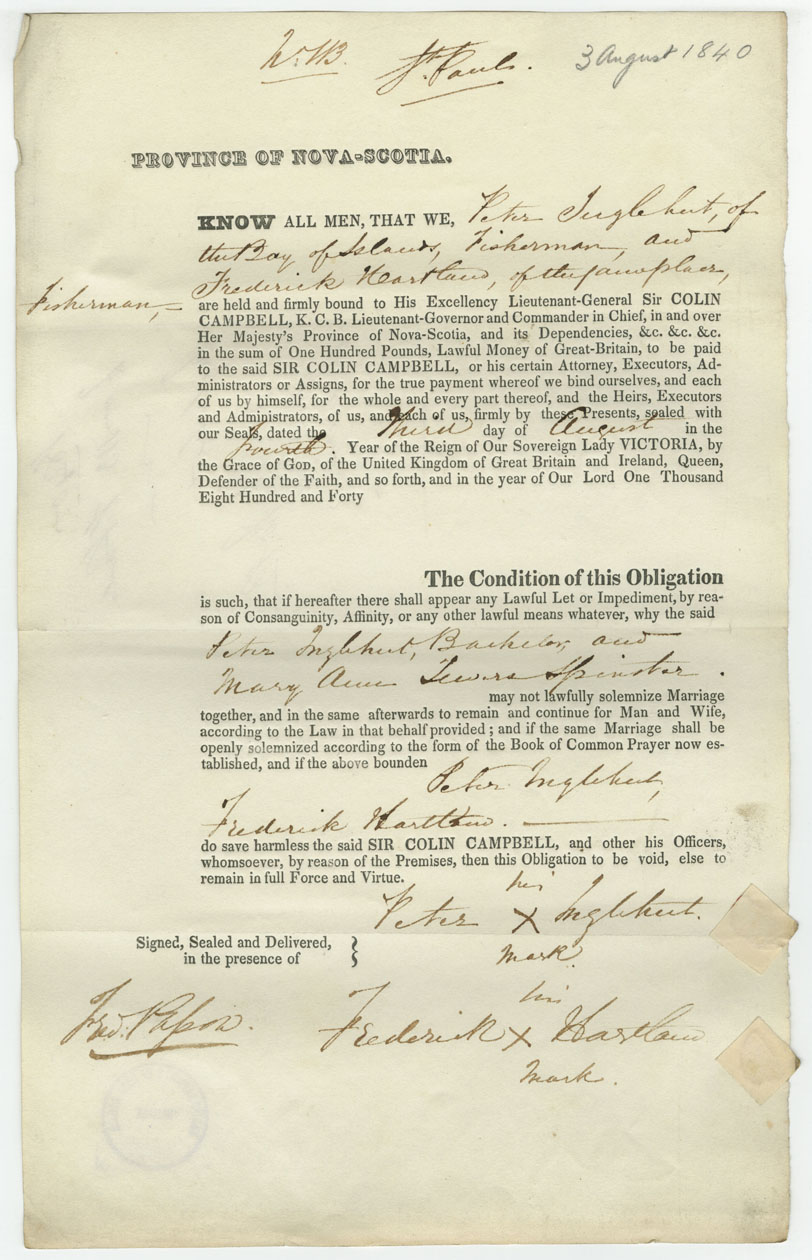 St. Pauls.
3 August 1840
PROVINCE OF NOVA-SCOTIA.
KNOW ALL MEN, THAT WE, Peter Inglehut, of
the Bay of Islands, Fisherman, and
Frederick Hartland, of the same place,
Fisherman,
are held and firmly bound to His Excellency Lieutenant-General Sir COLIN
CAMPBELL, K. C. B. Lieutenant-Governor and Commander in Chief, in and over
Her Majesty's Province of Nova-Scotia, and its Dependencies, &c. &c. &c.
in the sum of One Hundred Pounds, Lawful Money of Great-Britain, to be paid
to the said SIR COLIN CAMPBELL, or his certain Attorney, Executors, Ad-
ministrators or Assigns, for the true payment whereof we bind ourselves, and each
of us by himself, for the whole and every part thereof, and the Heirs, Executors
and Administrators, of us, and each of us, firmly by these Presents, sealed with
our Seals, dated the Third day of August in the
Fourth. Year of the Reign of Our Sovereign Lady VICTORIA, by
the Grace of GOD, of the United Kingdom of Great Britain and Ireland, Queen,
Defender of the Faith, and so forth, and in the year of Our Lord One Thousand
Eight Hundred and Forty
The Condition of this Obligation
is such, that if hereafter there shall appear any Lawful Let or Impediment, by rea-
son of Consanguinity, Affinity, or any other lawful means whatever, why the said
Peter Inglehut, Bachelor, and
Mary Ann Spinster.
may not lawfully solemnize Marriage
together, and in the same afterwards to remain and continue for Man and Wife,
according to the Law in that behalf provided; and if the same Marriage shall be
openly solemnized according to the form of the Book of Common Prayer now es-
tablished, and if the above bounden
Peter Inglehut,
Frederick Hartland.
do save harmless the said SIR COLIN CAMPBELL, and other his Officers,
whomsoever, by reason of the Premises, then this Obligation to be void, else to
remain in full Force and Virtue.
his
Peter X Inglehut.
mark.
Signed, Sealed and Delivered,
in the presence of
his
Frederick X Hartland
mark.